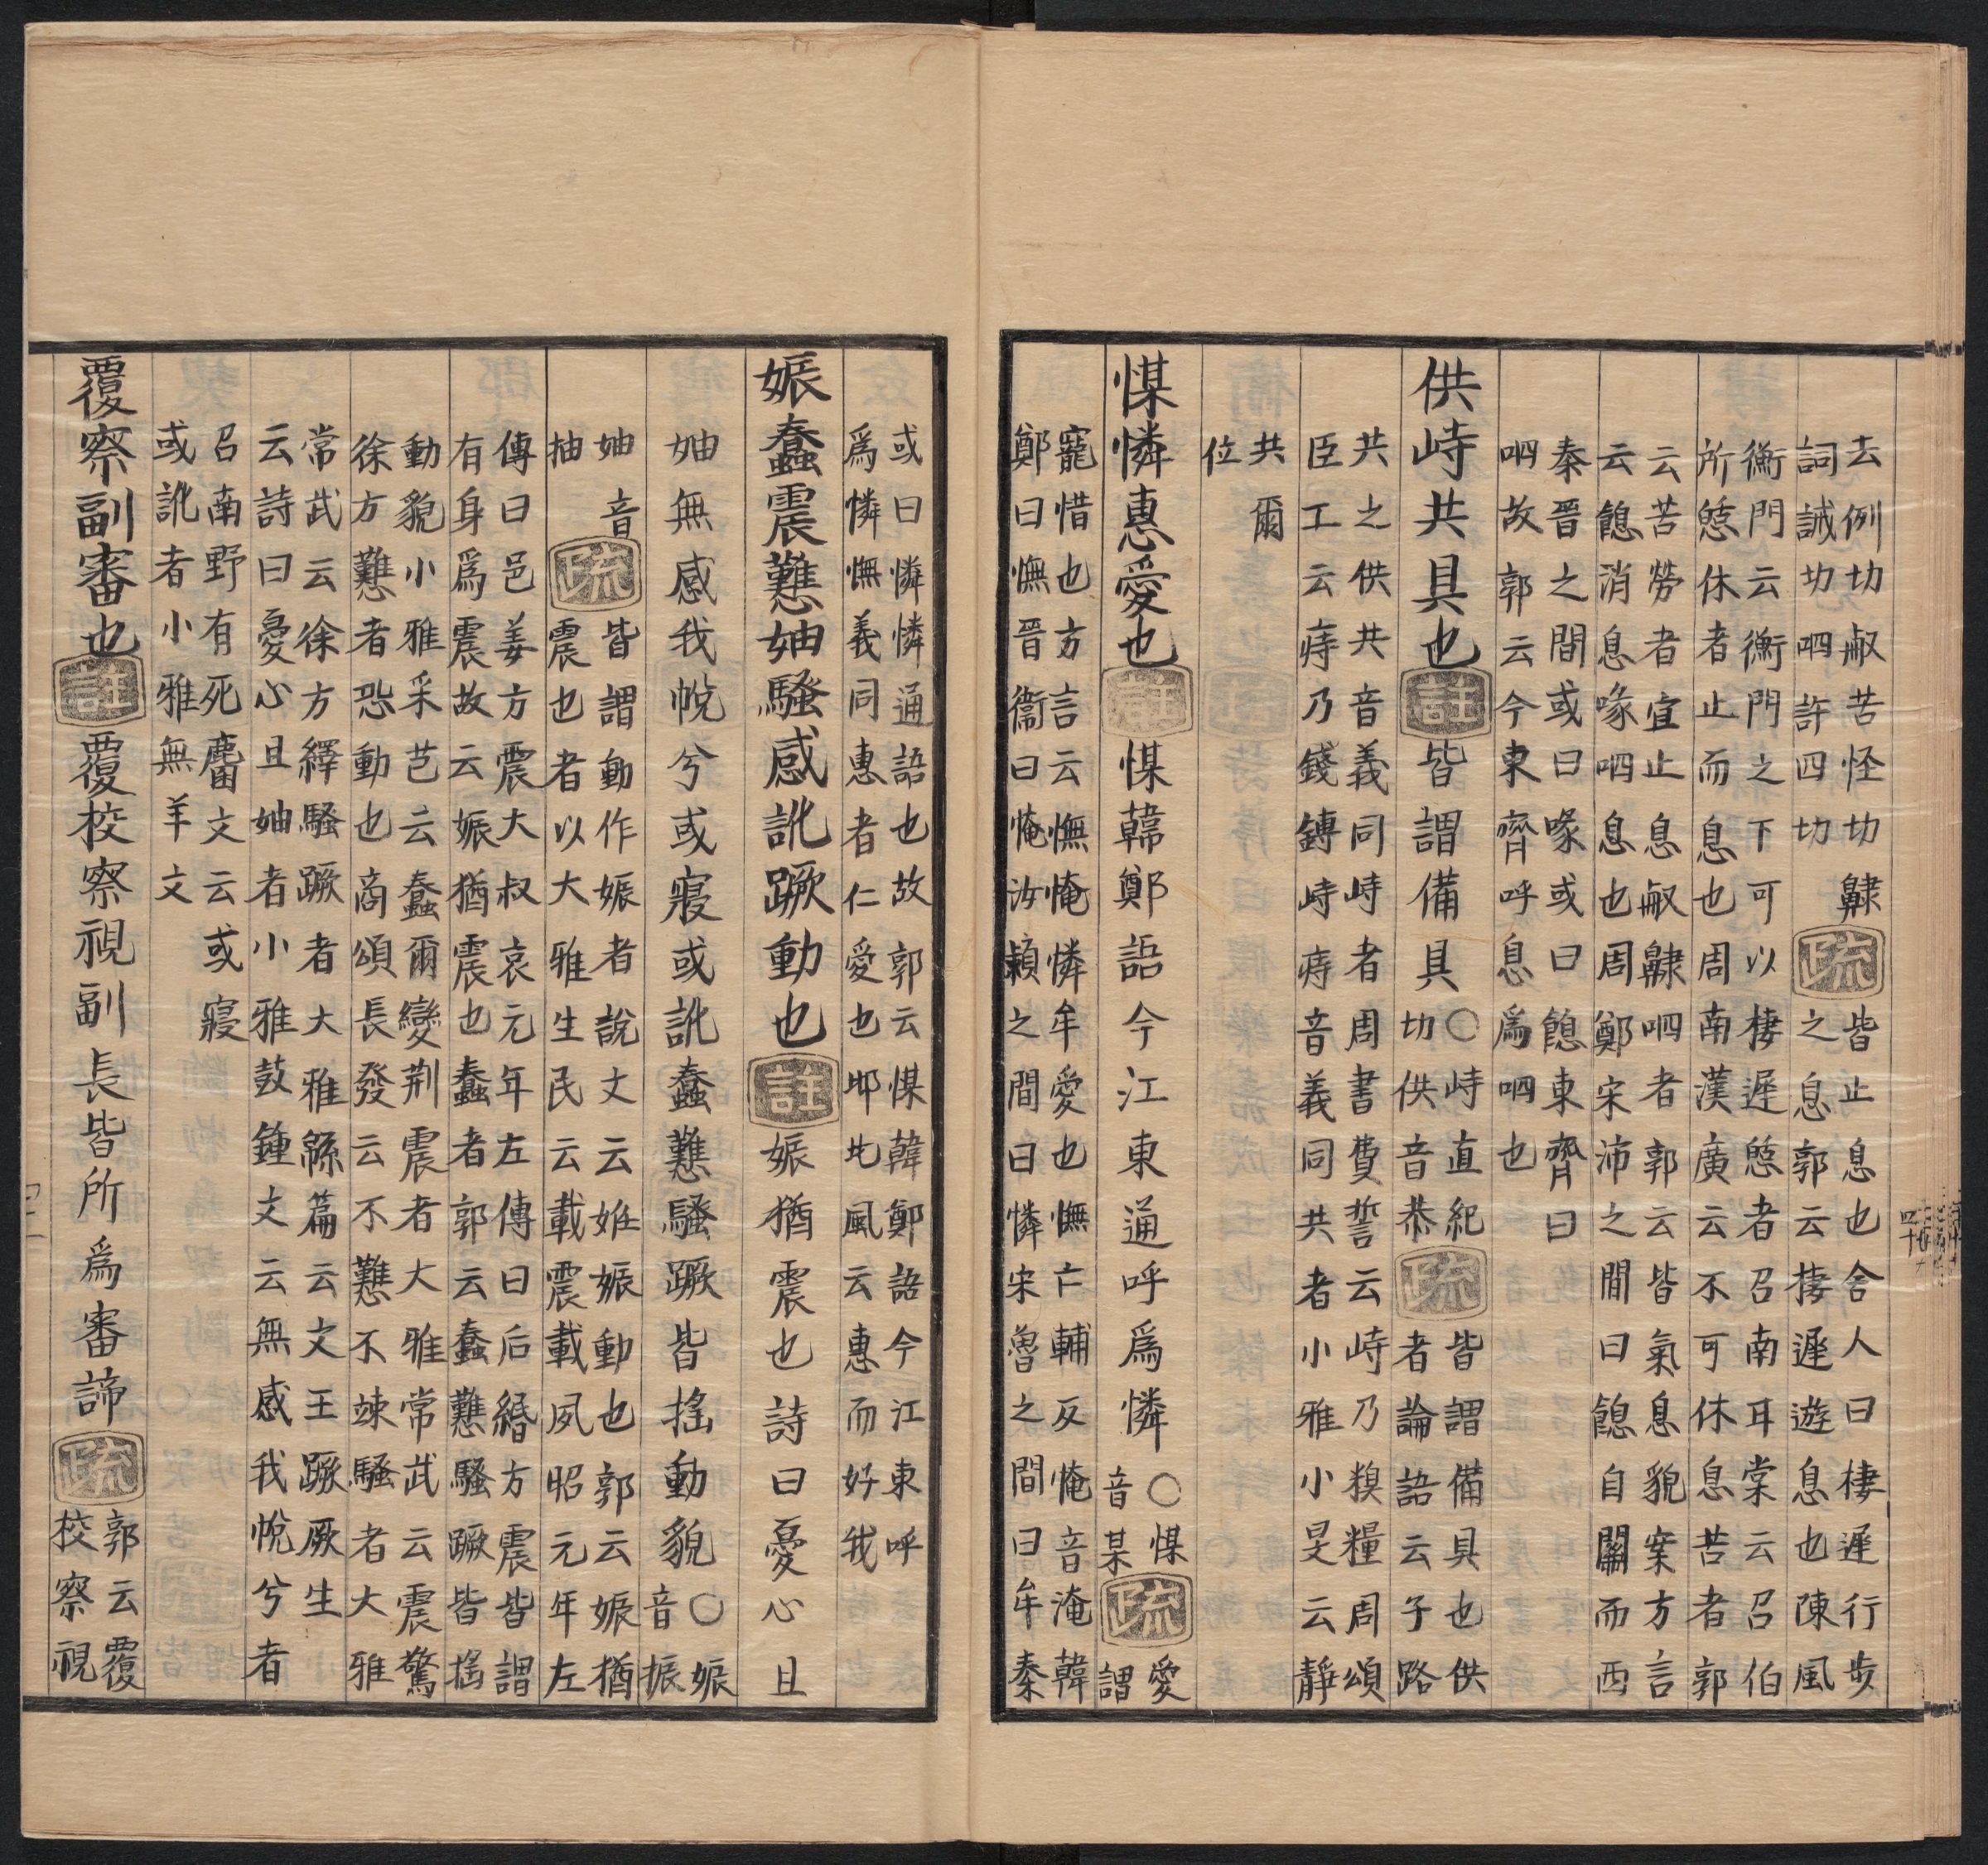 去例切㕞苦怪切齂
詞誡切呬許四切
疏
皆止息也舍人曰棲遲行步
之息郭云棲遲遊息也陳風
衡門云衡門之下可以棲遲憩者召南耳棠云召伯
所憩休者止而息也周南漢廣云不可休息苦者郭
云苦勞者宜止息㕞齂呬者郭云皆氣息貌案方言
云䭒消息喙呬息也周鄭宋沛之間曰䭒自關而西
秦晉之間或曰喙或曰䭒東齊曰
呬故郭云今東齊呼息爲呬也
供峙共具也註皆謂備具
○峙直紀
切供音恭
疏
皆謂備具也供
者論語云子路
共之供共音義同峙者周書費誓云峙乃糗糧周頌
臣工云庤乃錢鎛峙庤音義同共者小雅小旻云靜
共爾
位
㥤憐惠愛也註㥤韓鄭語今江東通呼爲憐
○㥤
音某
疏
愛
謂
寵惜也方言云憮㤿憐牟愛也憮亡輔反㤿音淹韓
鄭曰憮晉衞曰㤿汝潁之間曰憐宋魯之間曰牟秦
或曰憐憐通語也故郭云㥤韓鄭語今江東呼
爲憐憮義同惠者仁愛也邶北風云惠而好我
娠蠢震戁妯騷感訛蹶動也註娠猶震也詩曰憂心且
妯無感我帨兮或寢或訛蠢戁騷蹶皆搖動貌
○娠
音振
妯音
抽
疏
皆謂動作娠者說文云娠動也郭云娠猶
震也者以大雅生民云載震載夙昭元年左
傳曰邑姜方震大叔哀元年左傳曰后緡方震皆謂
有身爲震故云娠猶震也蠢者郭云蠢戁騷蹶皆搖
動貌小雅采芑云蠢爾蠻荆震者大雅常武云震驚
徐方戁者恐動也商頌長發云不戁不竦騷者大雅
常武云徐方繹騷蹶者大雅緜篇云文王蹶厥生
云詩曰憂心且妯者小雅鼓鍾文云無感我帨兮者
召南野有死麕文云或寢
或訛者小雅無羊文
覆察副審也註覆校察視副長皆所爲審諦
疏
郭云覆
校察視
四十